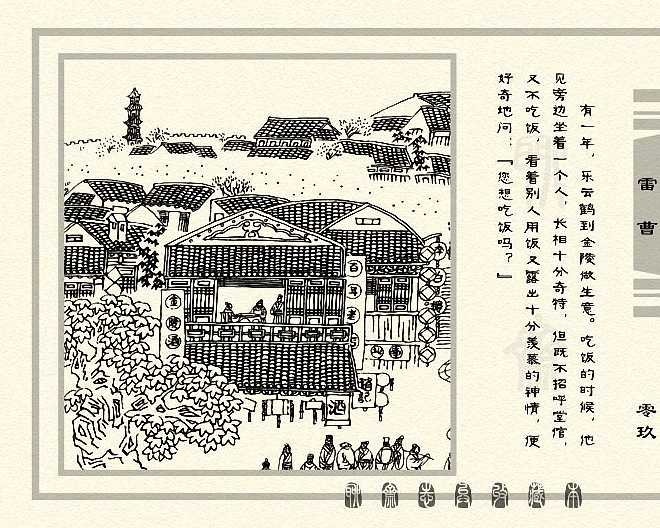 有一年，乐云鹤到金陵做生意。吃饭的时候，他
见旁边坐着一个人，长相十分奇特，但既不招呼堂倌，
又不吃饭，看着别人用饭又露出十分羡慕的神情，便
好奇地问：「您想吃饭吗？」
雷曹
零玖
金陵酒
酒